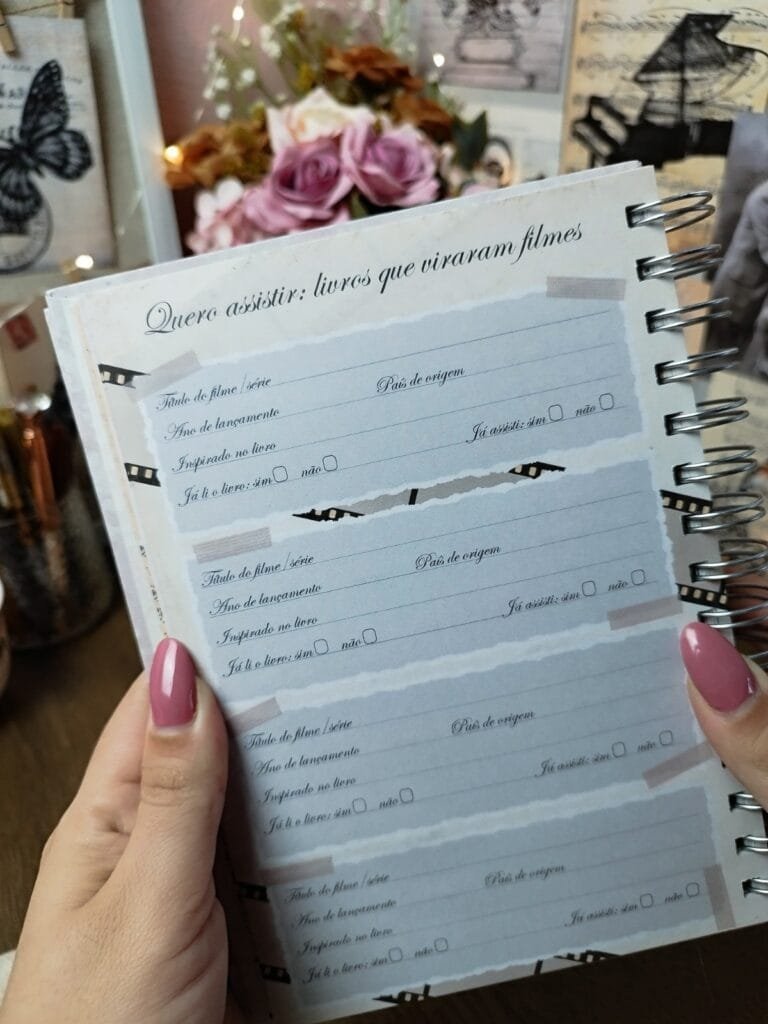 Quero assistir: livros que viraram filmes
Título do filme/série
Ano de lançamento País de origem
Inspirado no livro
Já li o livro: sim não Já assisti: sim não
Título do filme/série
Ano de lançamento País de origem
Inspirado no livro
Já li o livro: sim não Já assisti: sim não
Título do filme/série
Ano de lançamento País de origem
Inspirado no livro
Já li o livro: sim não Já assisti: sim não
Título do filme/série
Ano de lançamento País de origem
Inspirado no livro
Já li o livro: sim não Já assisti: sim não